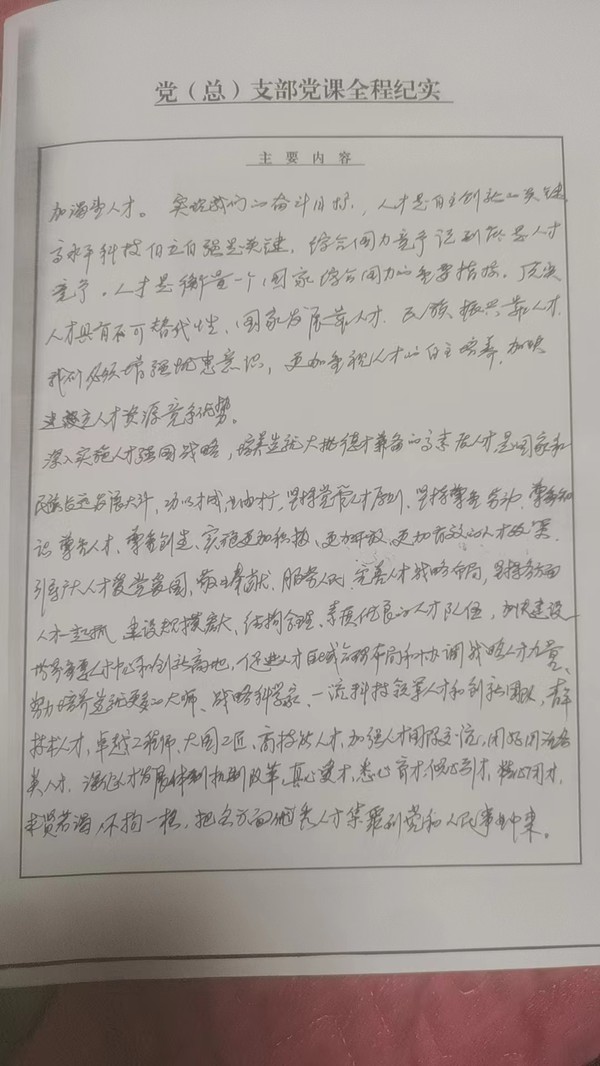 党（总）支部党课全程纪实
主要内容
加渴望人才。实现我们的奋斗目标，人才是自主创新的关键
高水平科技自立自强是关键，综合国力竞争说到底是人才
竞争。人才是衡量一个国家综合国力的重要指标。
人才具有不可替代性、国家发展靠人才、民族振兴靠人才，
我们必须增强忧患意识，更加重视人才的自主培养，加快
建立人才资源竞争优势。
深入实施人才强国战略，培养造就大批德才兼备的高素质人才是国家和
民族长远发展大计，功以才成业由才广，坚持党管人才原则，坚持尊重劳动、尊重知
识尊重人才、尊重创造，实施更加积极、更加开放、更加有效的人才政策，
引导广大人才爱党爱国，敬业奉献、服务人民，完善人才战略布局，坚持各方面
人才一起抓，建设规模宏大、结构合理、素质优良的人才队伍，加快建设
世界重要人才中心和创新高地，促进人才区域合理布局和协调战略人才力量、
努力培养造就更多的大师、战略科学家、一流科技领军人才和创新团队，青年
技术人才，卓越工程师、大国工匠、高技能人才，加强人才国际交流，用好用活各
类人才，深化人才发展体制机制改革，真心爱才，悉心育才，倾心引才，精心用才，
求贤若渴，不拘一格，把各方面优秀人才集聚到党和人民事业中来。